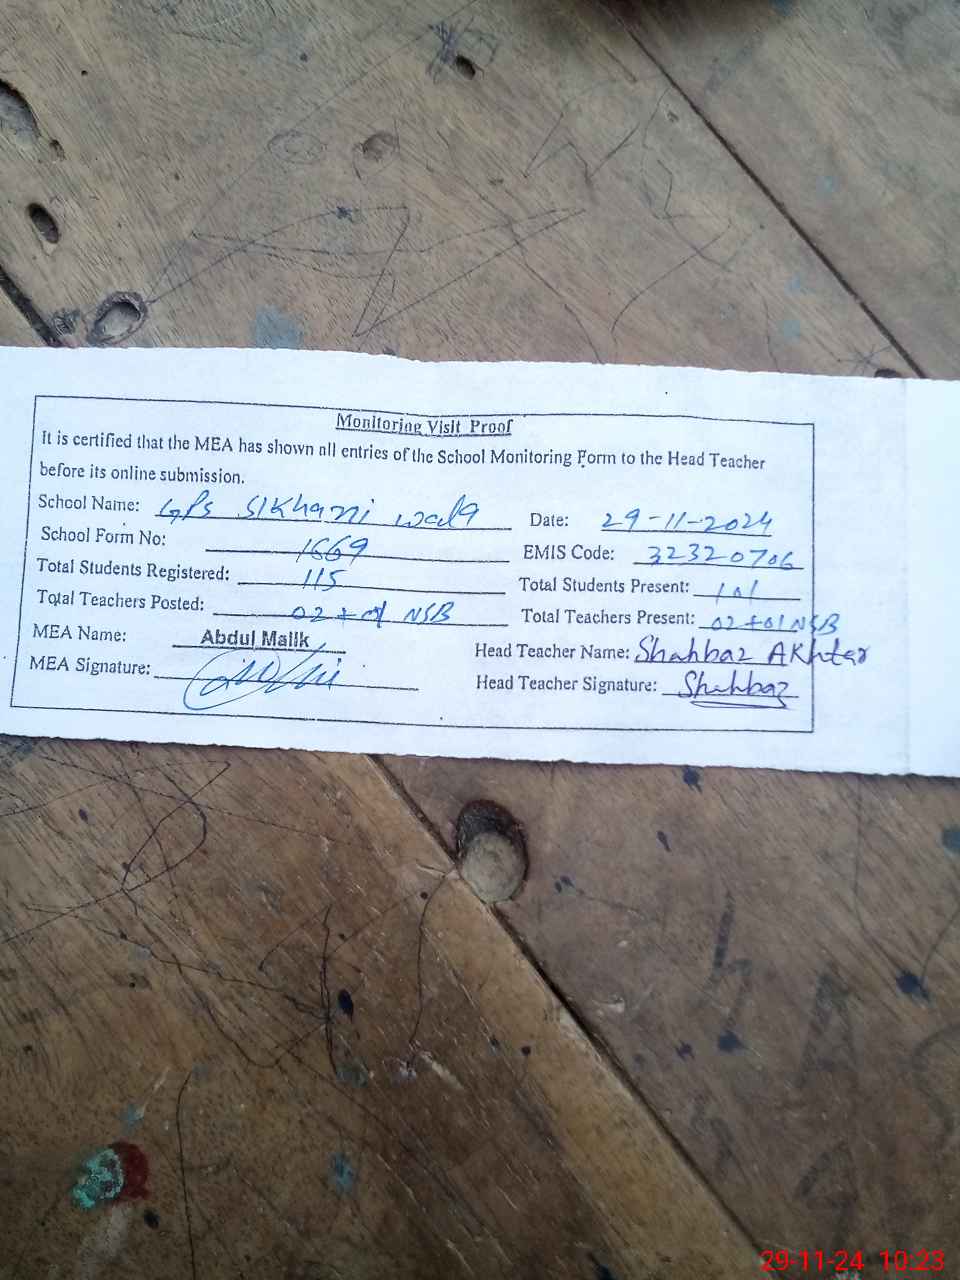 Monitoring Visit Proof
It is certified that the MEA has shown all entries of the School Monitoring Form to the Head Teacher
before its online submission.
School Name: GPS Sikhani wala Date: 29-11-2024
School Form No: 1669 EMIS Code: 32320706
Total Students Registered: 115 Total Students Present: 101
Total Teachers Posted: 02 + 01 NSB Total Teachers Present: 02 + 01 NSB
MEA Name: Abdul Malik Head Teacher Name: Shahbaz AKhtar
MEA Signature: Head Teacher Signature: Shahbaz
29-11-24 10:23